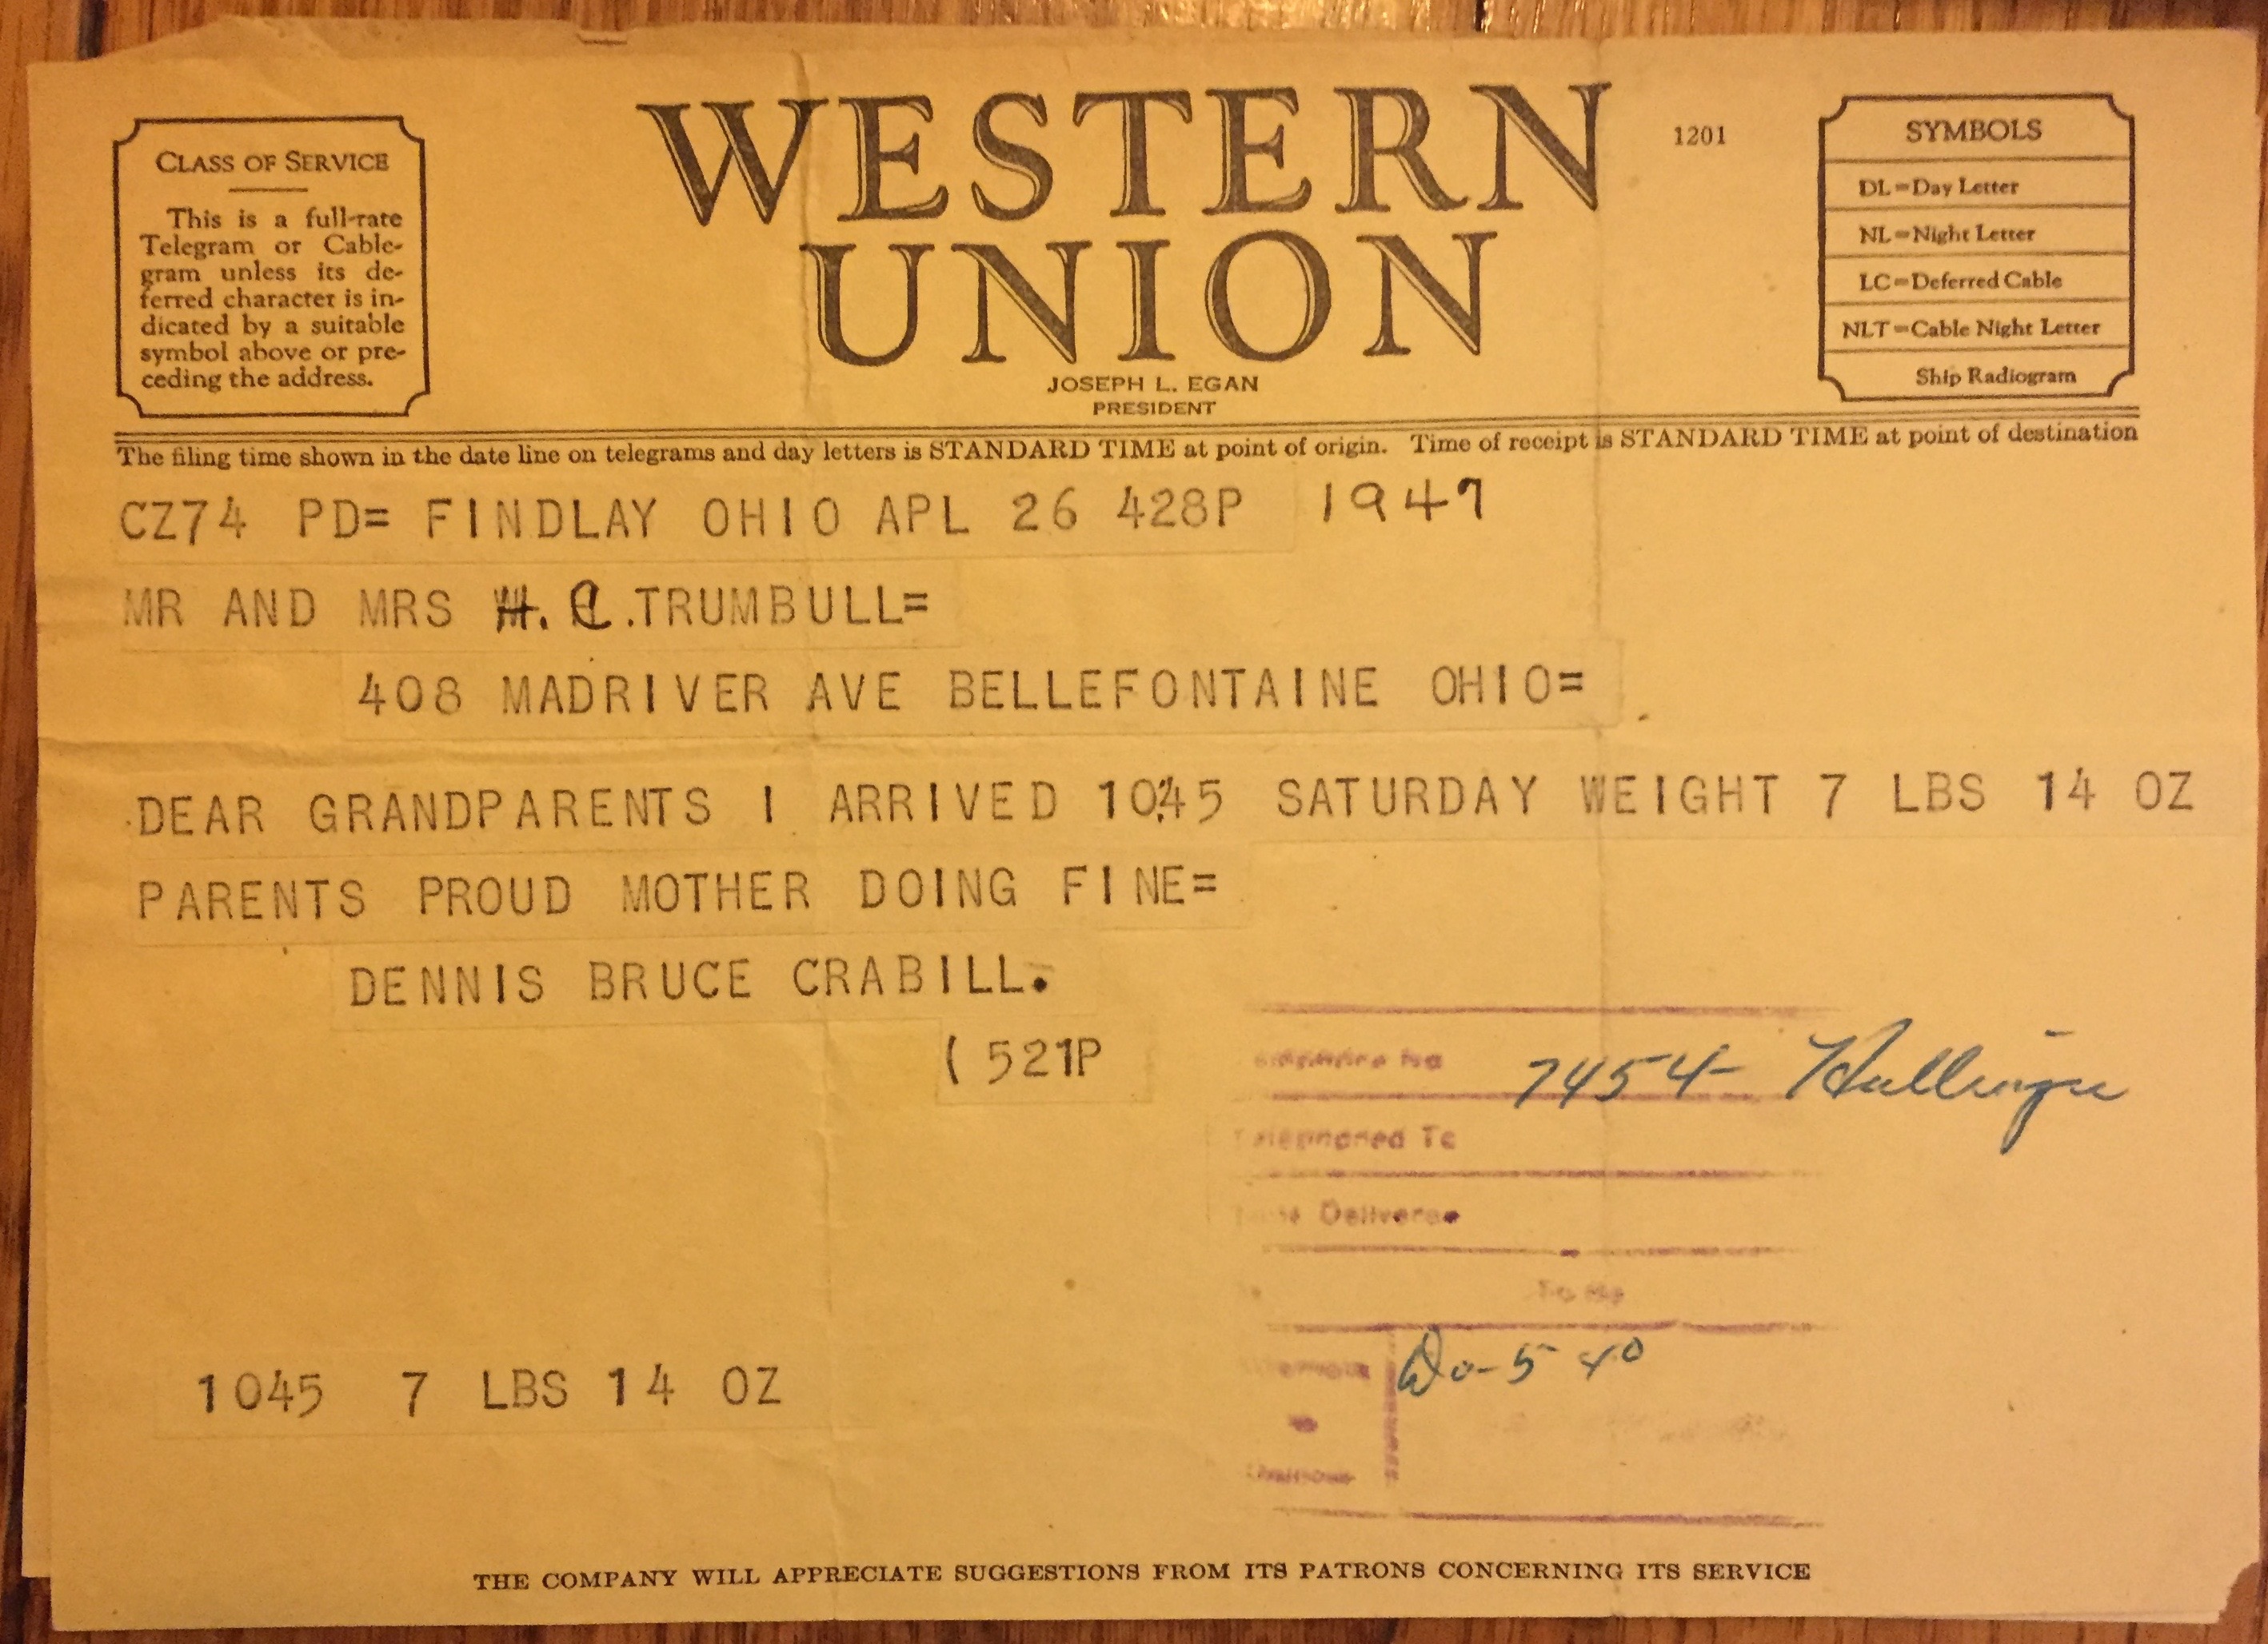 CLASS OF SERVICE
This is a full-rate
Telegram or Cable-
gram unless its de-
ferred character is in-
dicated by a suitable
symbol above or pre-
ceding the address.
WESTERN
UNION
1201
JOSEPH L. EGAN
PRESIDENT
SYMBOLS
DL=Day Letter
NL=Night Letter
LC=Deferred Cable
NLT=Cable Night Letter
Ship Radiogram
The filing time shown in the date line on telegrams and day letters is STANDARD TIME at point of origin. Time of receipt is STANDARD TIME at point of destination
CZ74 PD= FINDLAY OHIO APL 26 428P 1947
MR AND MRS H. C.TRUMBULL=
408 MADRIVER AVE BELLEFONTAINE OHIO=
DEAR GRANDPARENTS I ARRIVED 1045 SATURDAY WEIGHT 7 LBS 14 OZ
PARENTS PROUD MOTHER DOING FINE=
DENNIS BRUCE CRABILL.
(521P
7454
Telephoned To
Delivered
To Be
5 40
1045 7 LBS 14 OZ
THE COMPANY WILL APPRECIATE SUGGESTIONS FROM ITS PATRONS CONCERNING ITS SERVICE